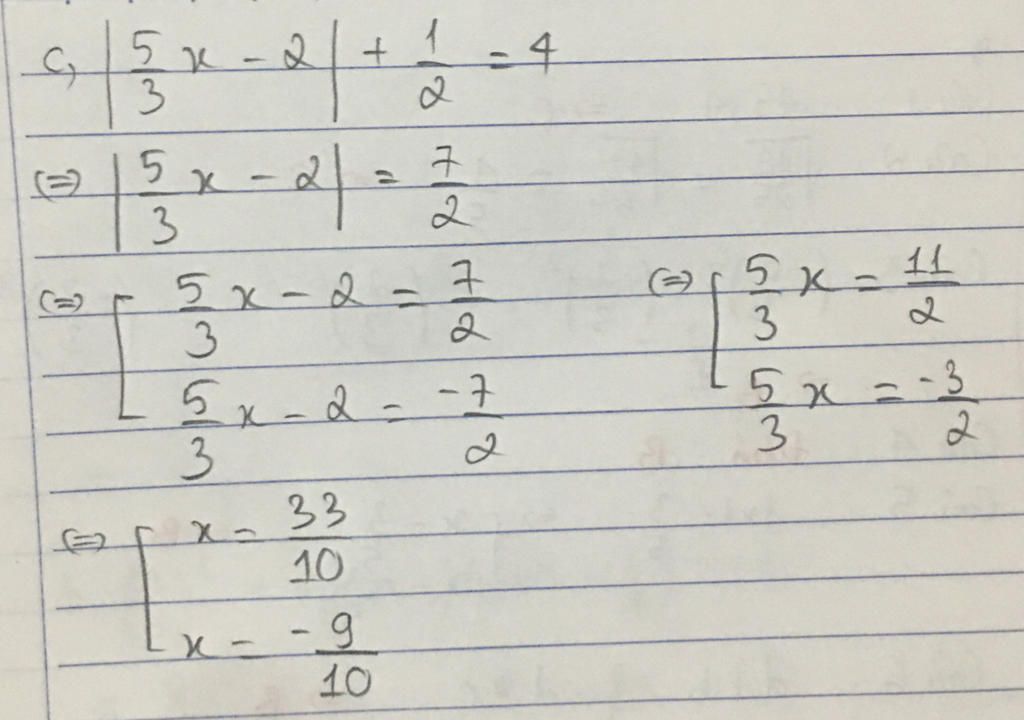 c, |5/3 x - 2| + 1/2 = 4
(=) |5/3 x - 2| = 7/2
(=) [ 5/3 x - 2 = 7/2 (=) [ 5/3 x = 11/2
5/3 x - 2 = -7/2 5/3 x = -3/2
(=) [ x = 33/10
x = -9/10